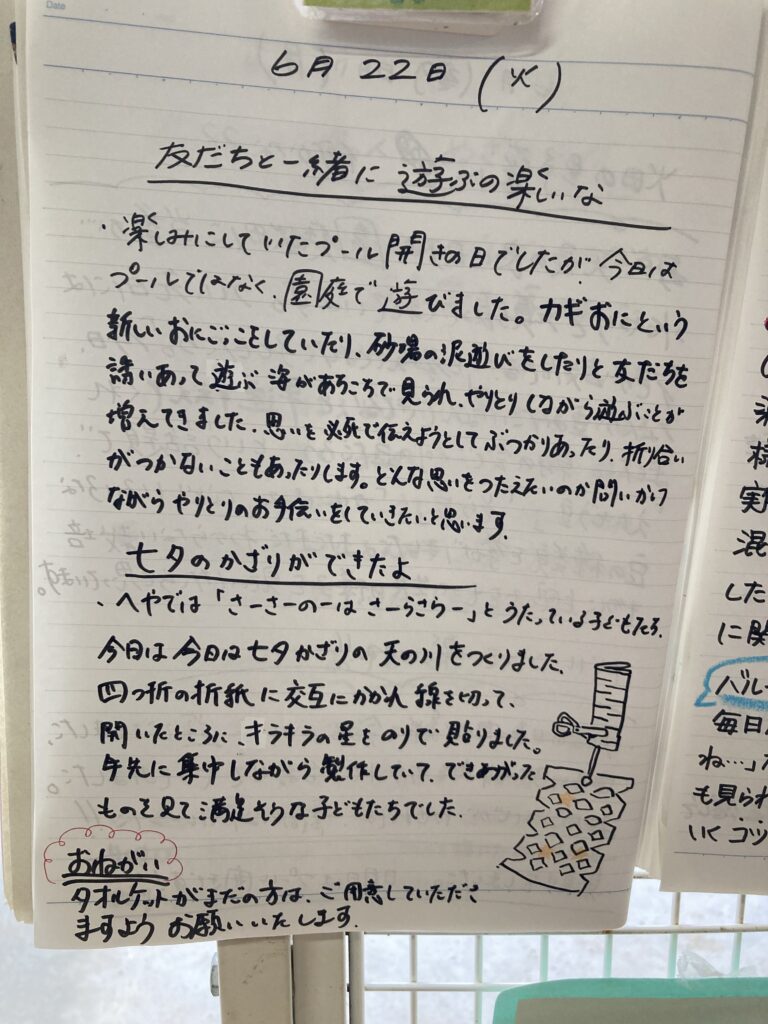 Date
6月 22日 (火)
友だちと一緒に 遊ぶの楽しいな
・楽しみにしていたプール開きの日でしたが、今日は
プールではなく、園庭で遊びました。カギおにという
新しいおにごっこをしていたり、砂場の泥遊びをしたりと友だちを
誘いあって遊ぶ姿があちこちで見られ、やりとりしながら遊ぶことが
増えてきました。思いを必死で伝えようとしてぶつかりあったり、折り合い
がつかないこともあったりします。どんな思いをつたえたいのか問いかけ
ながらやりとりのお手伝いをしていきたいと思います。
七夕のかざりができたよ
・へやでは「さーさーのーは さーらさらー」とうたっている子どもたち。
今日は今日は七夕かざりの 天の川をつくりました。
四つ折の折紙に交互にかかれ線を切って、
開いたところに、キラキラの星をのりで貼りました。
手先に集中しながら製作していて、できあがった
ものを見て満足そうな子どもたちでした。
おねがい
タオルケットがまだの方は、ご用意していただき
ますようお願いいたします。
実
混
した
に関
バルー
毎日
ね…」
も見られ
いくコツ